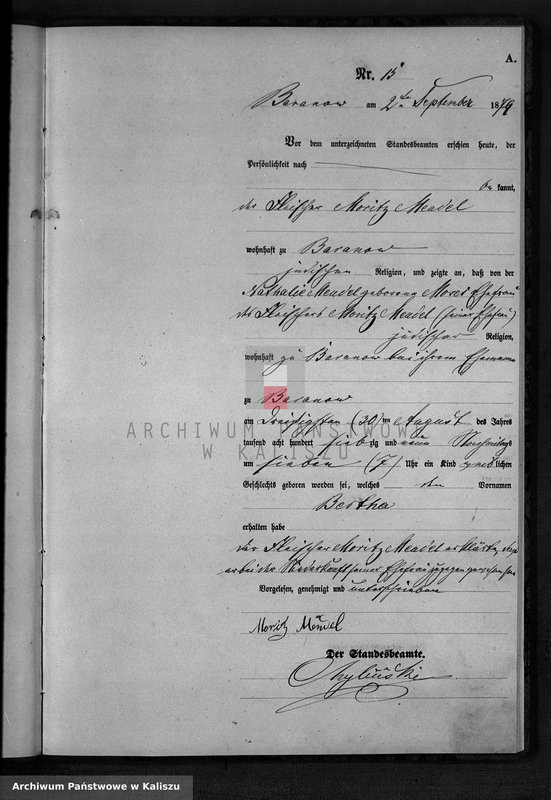 A.
Nr. 15
Baranow am 2ten September 1879
Vor dem unterzeichneten Standesbeamten erschien heute, der
Persönlichkeit nach
be kannt,
der Fleischer Moritz Mendel
wohnhaft zu Baranow
jüdischer Religion, und zeigte an, daß von der
Nathalie Mendel geborene Ehefrau
des Fleischers Moritz Mendel (seiner Ehefrau)
jüdischer Religion,
wohnhaft zu Baranow bei ihrem Ehemanne
zu Baranow
am dreißigsten (30) ten August des Jahres
tausend acht hundert siebzig und neun Nachmittags
um sieben (7) Uhr ein Kind weiblichen
Geschlechts geboren worden sei, welches den Vornamen
Bertha
erhalten habe
der Fleischer Moritz Mendel erklärte, daß
er bei der Niederkunft seiner Ehefrau zugegen gewesen sei
Vorgelesen, genehmigt und unterschrieben
Moritz Mendel
Der Standesbeamte.
ARCHIWUM PAŃSTWOWE
W KALISZU
Archiwum Państwowe w Kaliszu